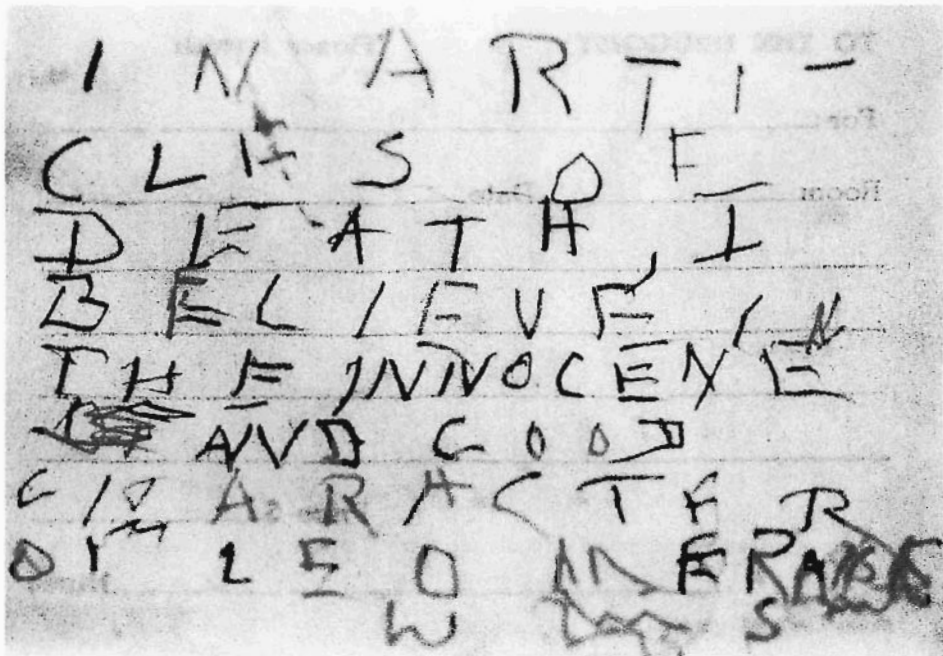 IN ARTI-
CLES OF
DEATH, I
BELIEVE IN
THE INNOCENCE
AND GOOD
CHARACTER
OF LEO M FRANK
W S